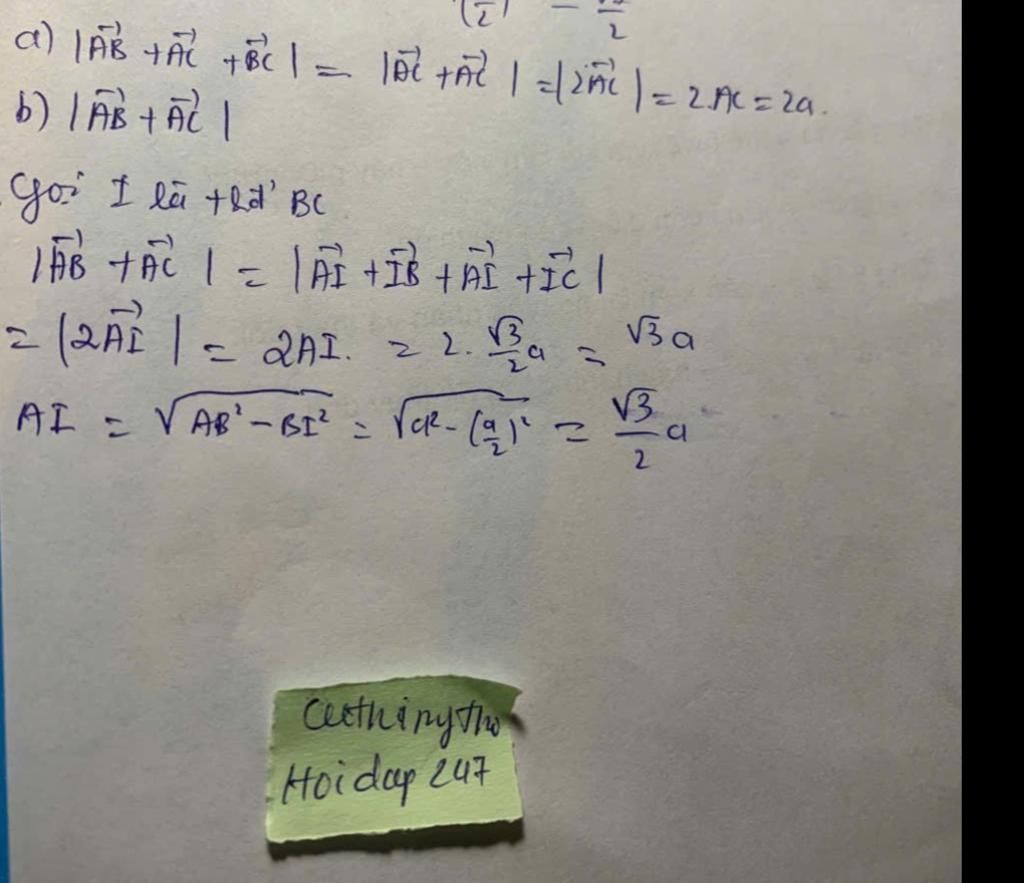 (2) - √3/2
a) |AB→ + AC→ + BC→| = |AC→ + AC→| = |2AC→| = 2.AC = 2a.
b) |AB→ + AC→|
Gọi I là tđ' BC
|AB→ + AC→| = |AI→ + IB→ + AI→ + IC→|
= |2AI→| = 2AI. = 2. √3/2 a = √3 a
AI = √(AB² - BI²) = √(a² - (a/2)²) = √3/2 a
Hoidap 247